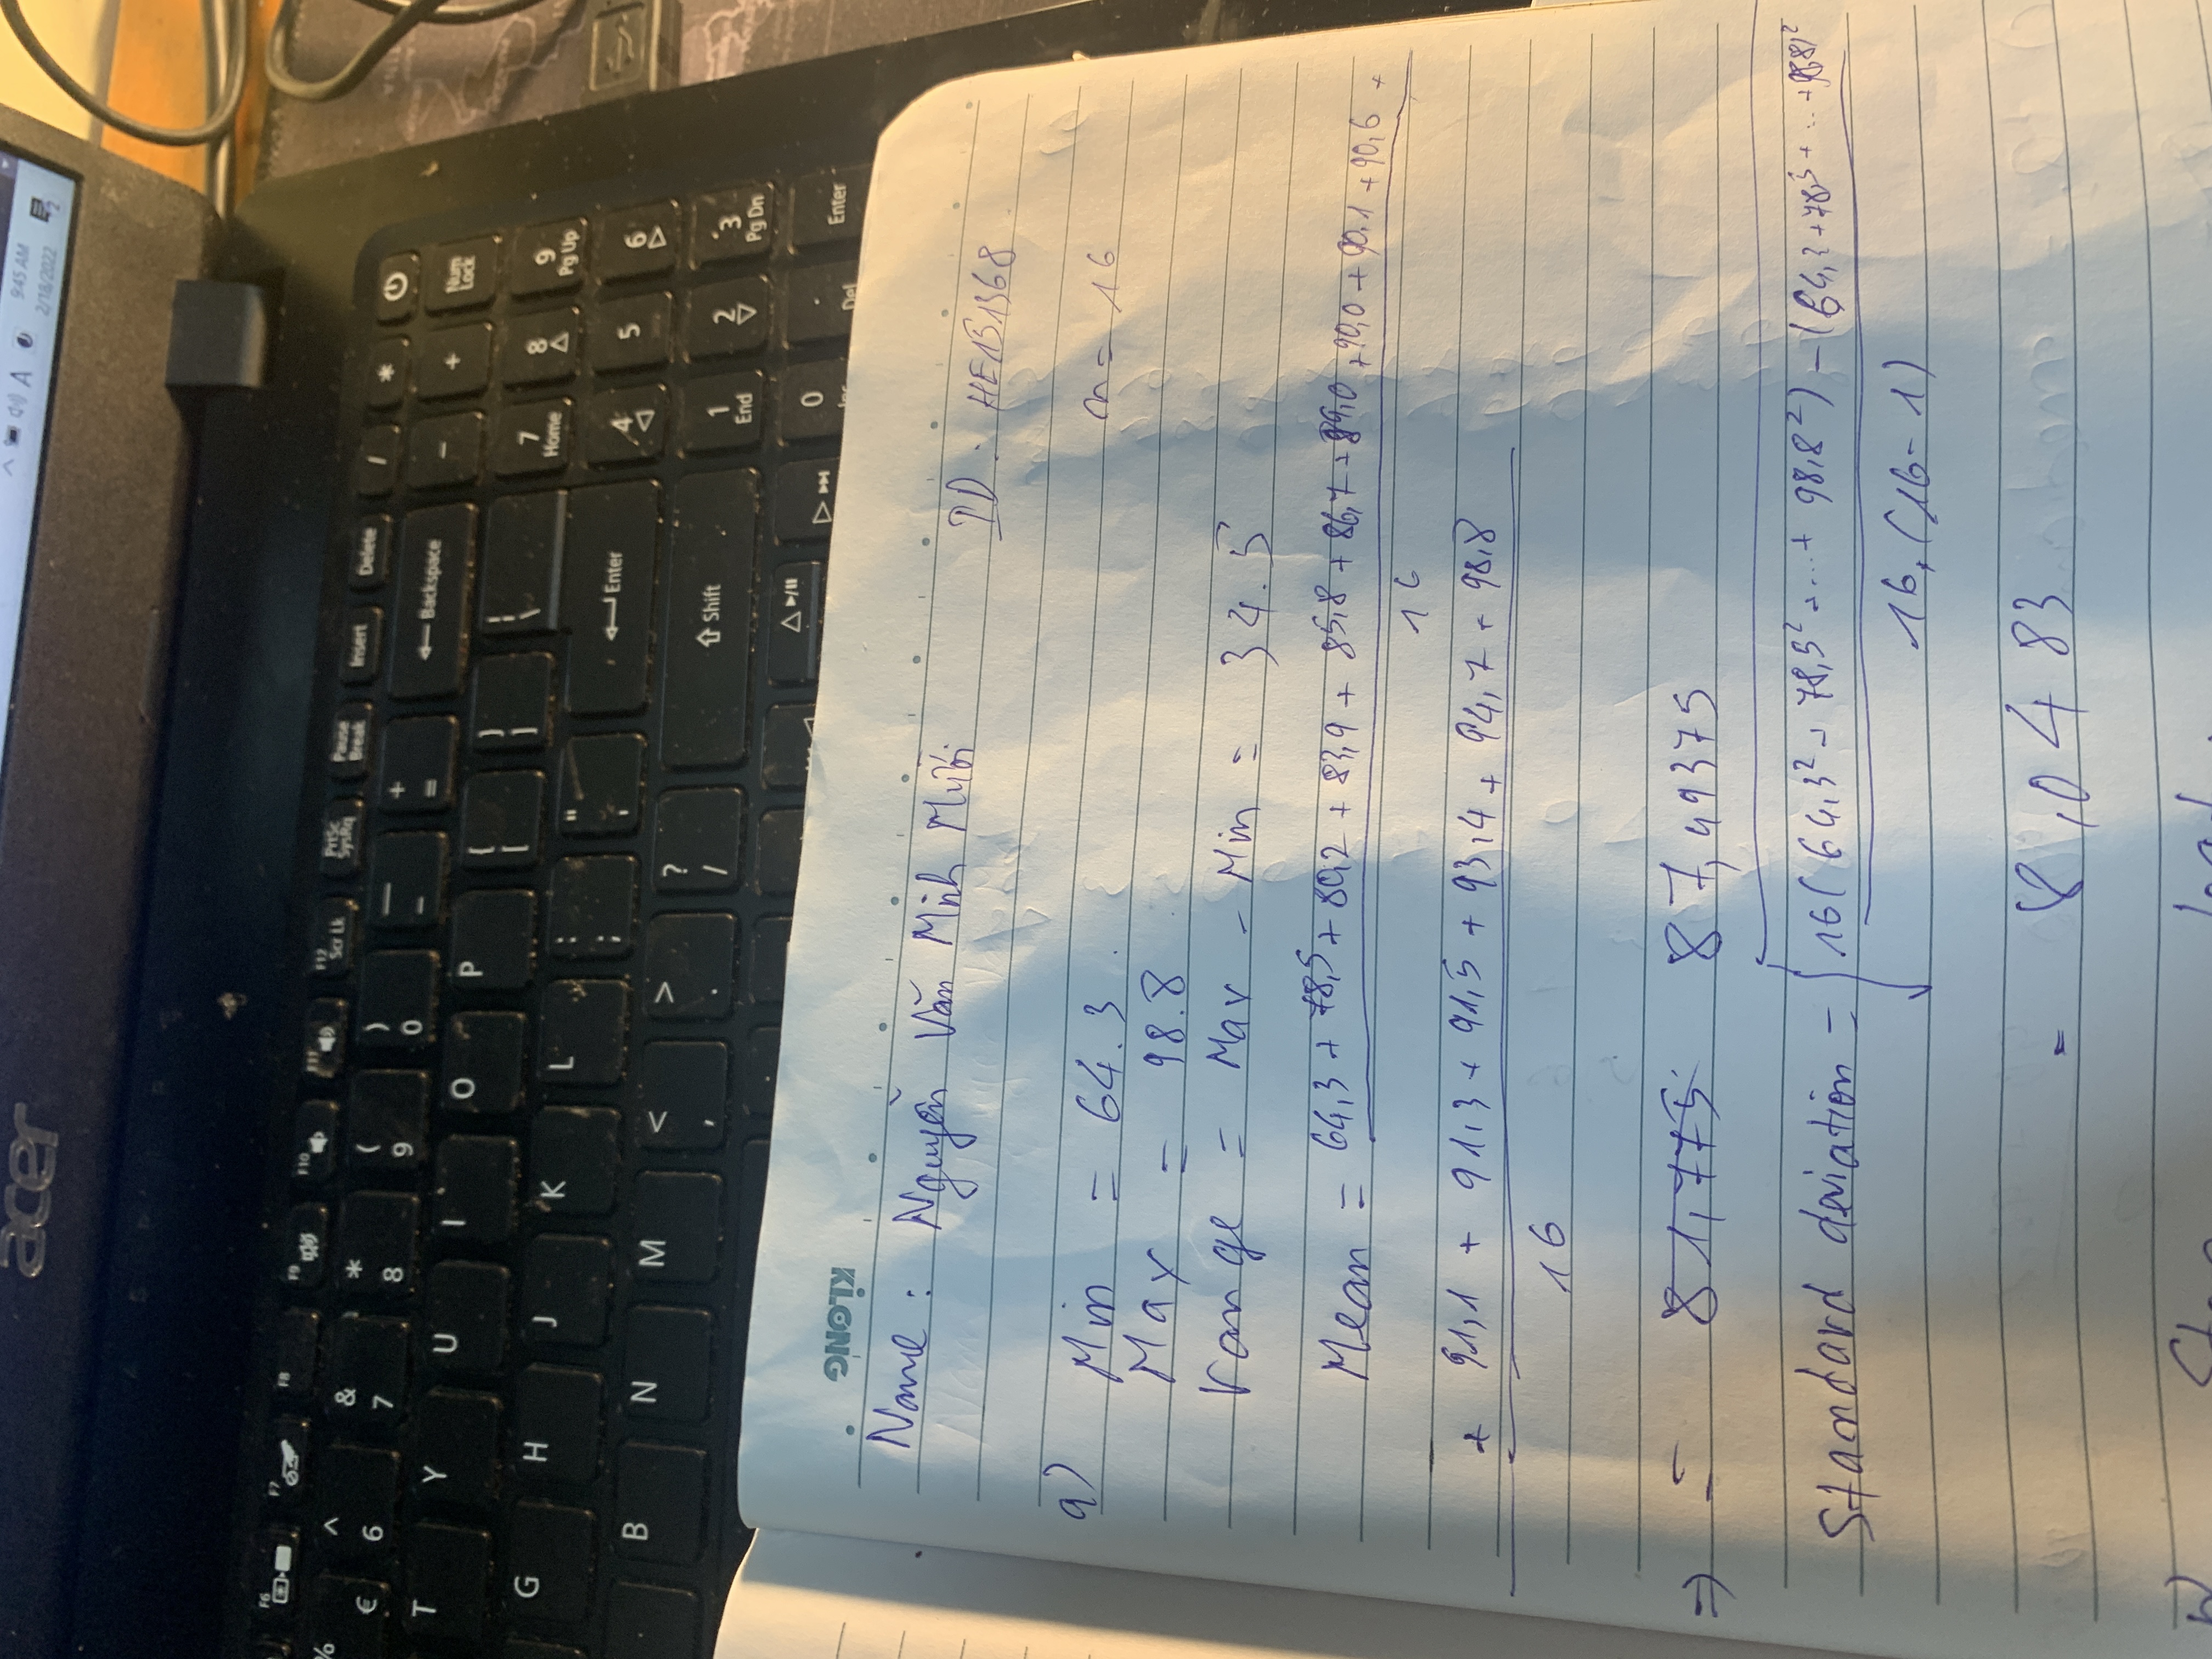 acer
9:45 AM
2/18/2022
F6 F7 F8 F9 F10 F11 F12 Scr Lk PrtSc SysRq Pause Break Insert Delete / *
% € ^ 6 & 7 * 8 ( 9 ) 0 — - + = ← Backspace - + Num Lock
T Y U I O P { [ } ] | \ 7 Home 8 9 Pg Up
G H J K L : ; " ' ← Enter 4 5 6
B N M < , > . ? / ⇧ Shift 1 End 2 3 Pg Dn
0 Ins . Del Enter
KLONG
Name : Nguyễn Văn Minh Mười ID : HE151368
a) Min = 64.3 . n = 16
Max = 98.8
range = Max - Min = 34.5
Mean = 64,3 + 78,5 + 80,2 + 83,9 + 85,8 + 86,7 + 89,0 + 90,0 + 90,1 + 90,6 +
16
+ 91,1 + 91,3 + 91,5 + 93,4 + 94,7 + 98,8
16
⇒ = 81,775 87,49375
Standard deviation = √ 16(64,3² + 78,5² + ... + 98,8²) - (64,3 + 78,5 + ... + 98,8)²
16.(16-1)
= 8,0483